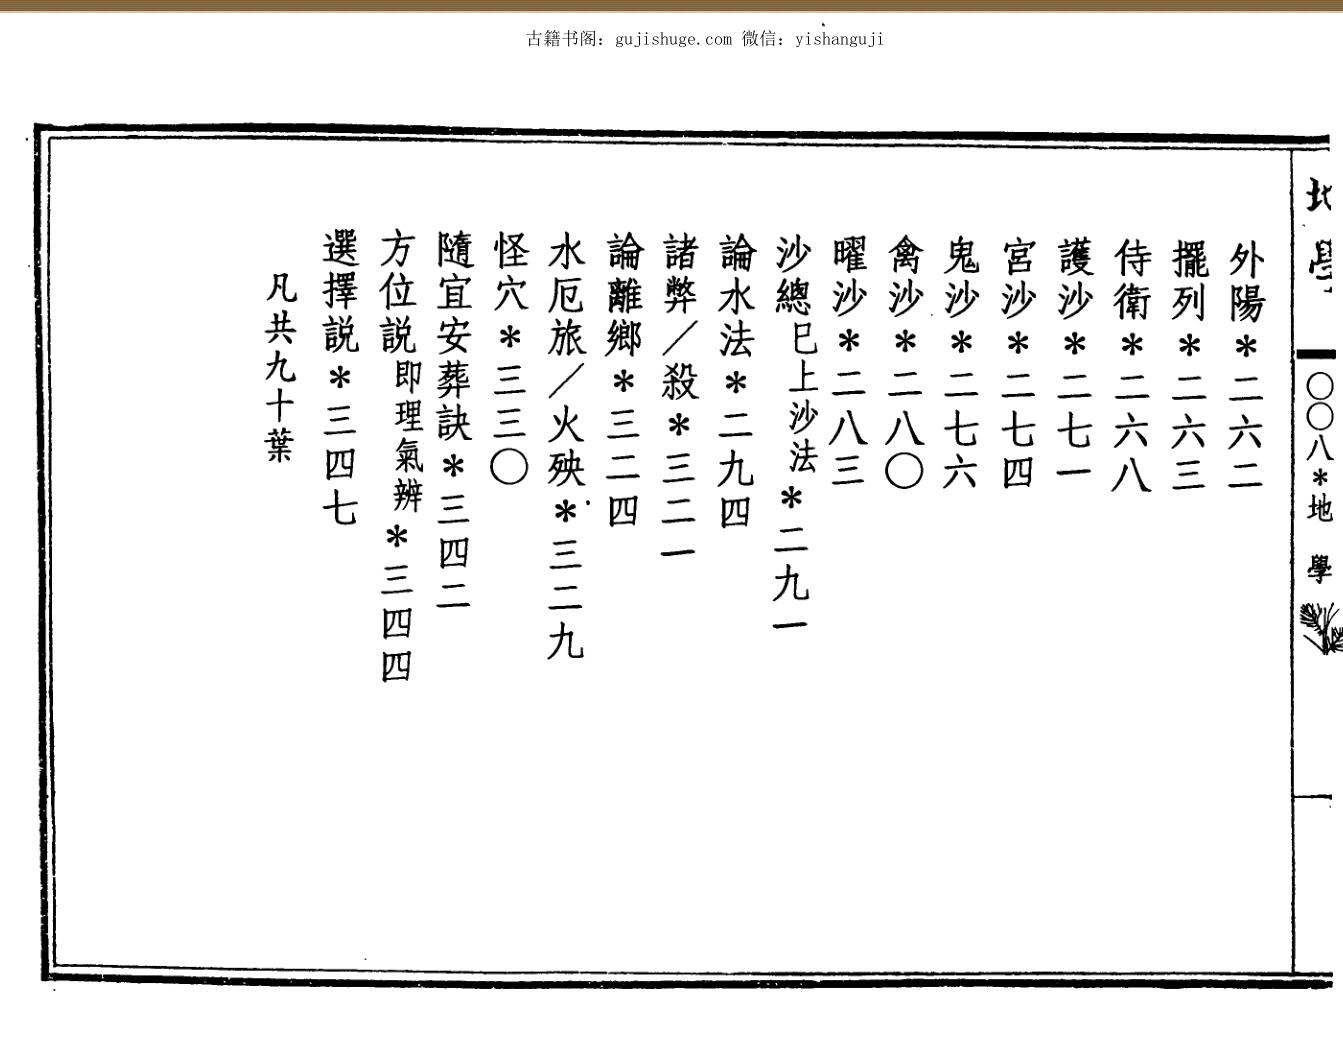 古籍书阁：gujishuge.com 微信：yishanguji
地學
〇〇八＊地 學
外陽＊二六二
擺列＊二六三
侍衛＊二六八
護沙＊二七一
宮沙＊二七四
鬼沙＊二七六
禽沙＊二八〇
曜沙＊二八三
沙總巳上沙法＊二九一
論水法＊二九四
諸弊／殺＊三二一
論離鄉＊三二四
水厄旅／火殃＊三二九
怪穴＊三三〇
隨宜安葬訣＊三四二
方位説即理氣辨＊三四四
選擇説＊三四七
凡共九十葉